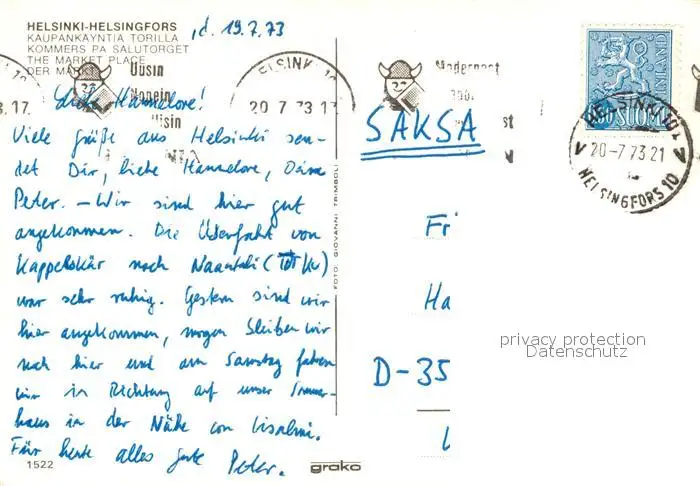 HELSINKI-HELSINGFORS
KAUPANKÄYNTIÄ TORILLA
KOMMERS PÅ SALUTORGET
THE MARKET PLACE
DER MAR
,d. 19.7.73
Liebe Hannelore!
Viele Grüße aus Helsinki sen-
det Dir, liebe Hannelore, Dein
Peter. – Wir sind hier gut
angekommen. Die Überfahrt von
Kappelskär nach Naantali
war sehr ruhig. Gestern sind wir
hier angekommen, morgen bleiben wir
noch hier und am Samstag fahren
wir in Richtung auf unser Sommer-
haus in der Nähe von Iisalmi.
Für heute alles gute Peter.
1522
grako
FOTO: GIOVANNI TRIMBOLI
Uusin
20 7 73 17
Modernast
SUOMI
FINLAND
HELSINKI 10
20-7.73 21
HELSINGFORS 10
SAKSA
Fr
Ha
D-35
privacy protection
Datenschutz